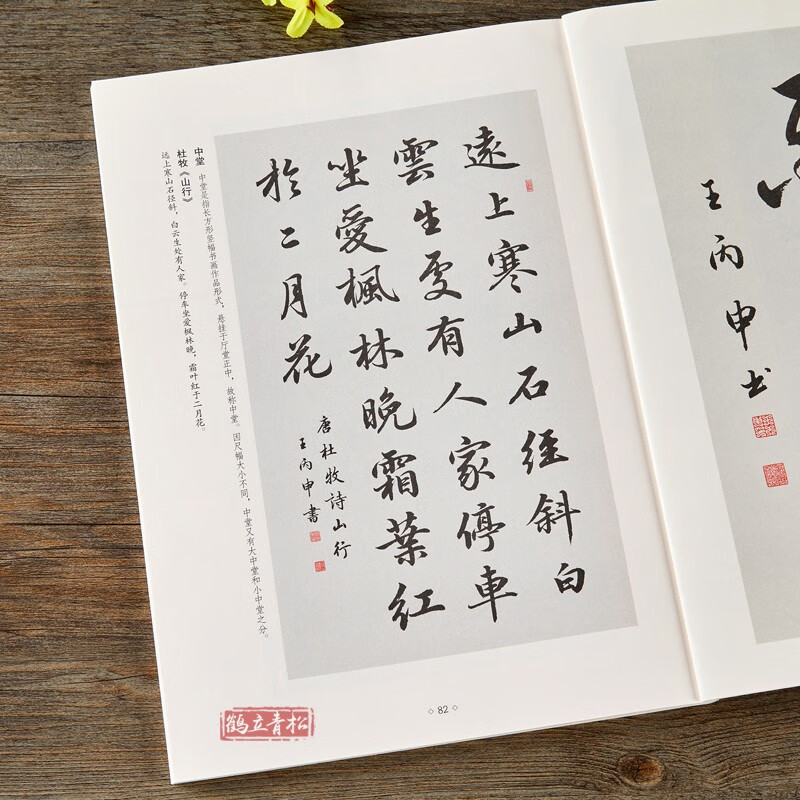 遠上寒山石徑斜白
雲生處有人家停車
坐愛楓林晚霜葉紅
於二月花
唐杜牧詩山行
王丙申書
中堂 中堂是指长方形竖幅书画作品形式，悬挂于厅堂正中，故称中堂。因尺幅大小不同，中堂又有大中堂和小中堂之分。
杜牧《山行》
远上寒山石径斜，白云生处有人家。停车坐爱枫林晚，霜叶红于二月花。
82
王丙申书
鹤立青松